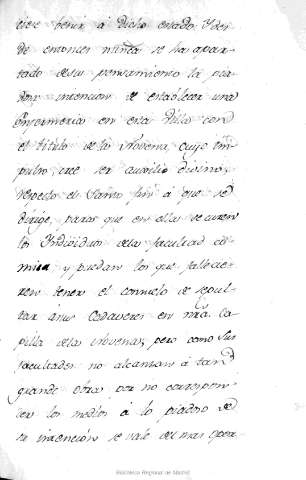 ciese venir á dicho estado. Y des-
de entonces nunca se ha apar-
tado de su pensamiento la pia-
dosa intencion de establecer una
Enfermeria en esta Villa con
el titulo de la Novena, cuyo im-
pulso cree ser auxilio divino,
respecto el santo fin á que se
dirige, para que en ella se curen
los Individuos de la facultad có-
mica y puedan los que fallecie-
ren tener el consuelo de sepul-
tar sus Cadaveres en nrã Ca-
pilla de la Novena; pero como sus
facultades no alcanzan á tan
grande obra por no correspon-
der los medios á lo piadoso de
su intención se vale del mas oper-
Biblioteca Regional de Madrid